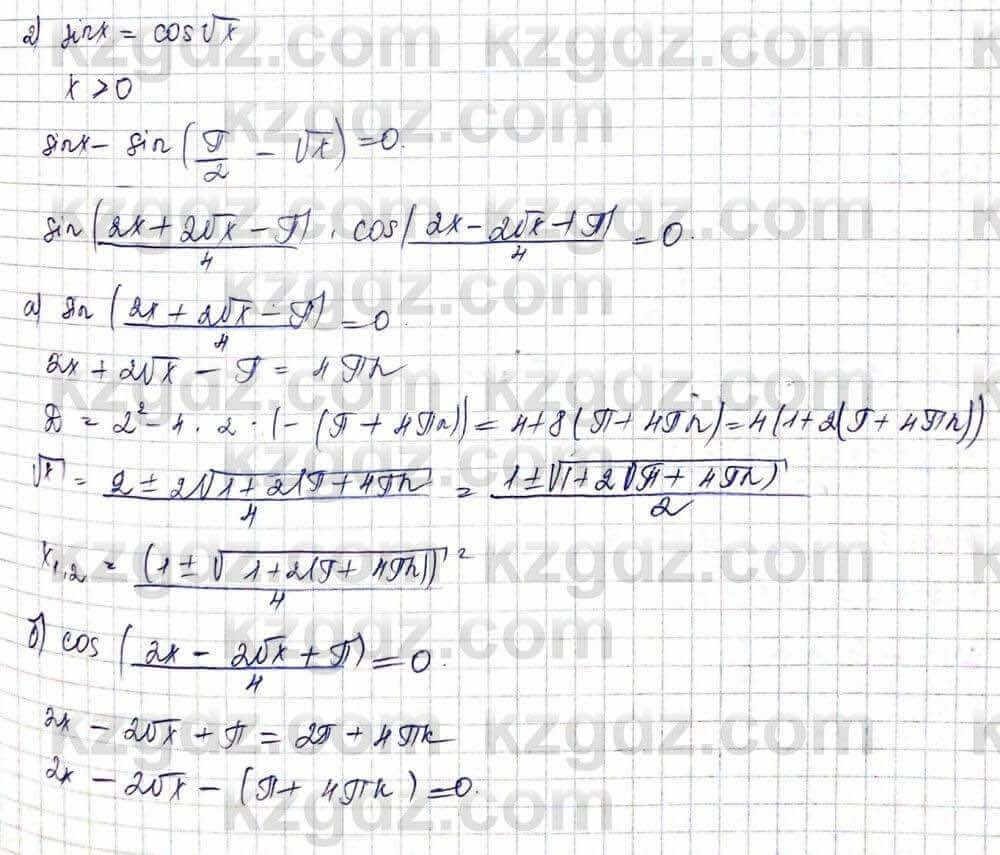 2) sin x = cos√x
x > 0
sin x - sin(π/2 - √x) = 0.
sin (2x + 2√x - π)/4 · cos (2x - 2√x + π)/4 = 0.
а) sin (2x + 2√x - π)/4 = 0.
2x + 2√x - π = 4πn
D = 2² - 4 · 2 · (-(π + 4πn)) = 4 + 8(π + 4πn) = 4(1 + 2(π + 4πn))
√x = (2 ± 2√(1 + 2(π + 4πn))/4 = (1 ± √(1 + 2(π + 4πn))/2
x₁,₂ = (1 ± √(1 + 2(π + 4πn)))²/4
б) cos (2x - 2√x + π)/4 = 0.
2x - 2√x + π = 2π + 4πk
2x - 2√x - (π + 4πk) = 0.
kzgdz.com